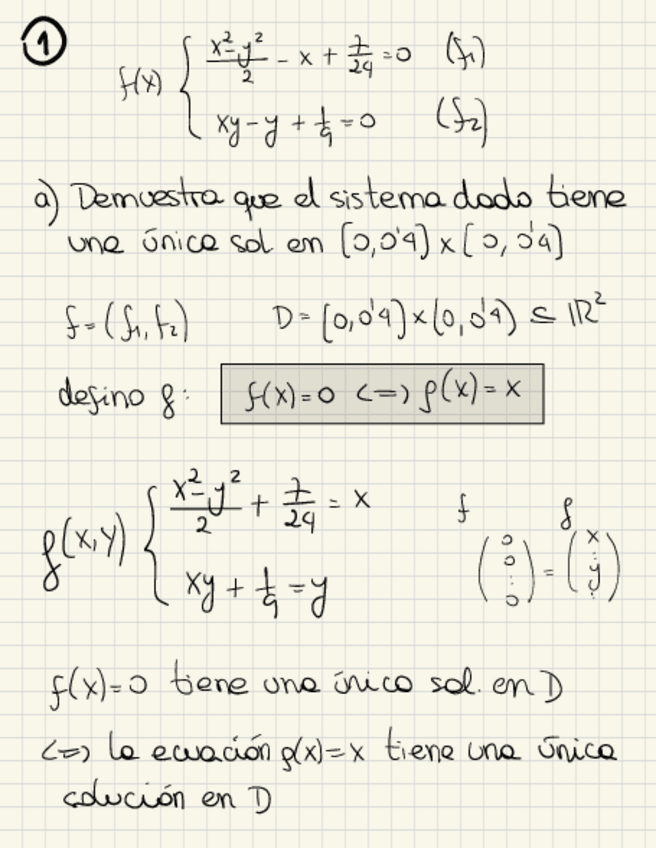 ①
f(x) { (x²-y²)/2 - x + 7/24 = 0 (f₁)
xy - y + 1/9 = 0 (f₂)
a) Demuestra que el sistema dado tiene
una única sol en [0,0'4] x [0,0'4]
f = (f₁, f₂) D = [0,0'4] x [0,0'4] ⊆ ℝ²
defino g: f(x) = 0 <=> g(x) = x
g(x,y) { (x²-y²)/2 + 7/24 = x
xy + 1/9 = y
f g
(0 0 ⋮ 0) = (x ⋮ y ⋮)
f(x) = 0 tiene una único sol. en D
<=> la ecuación g(x) = x tiene una única
solución en D